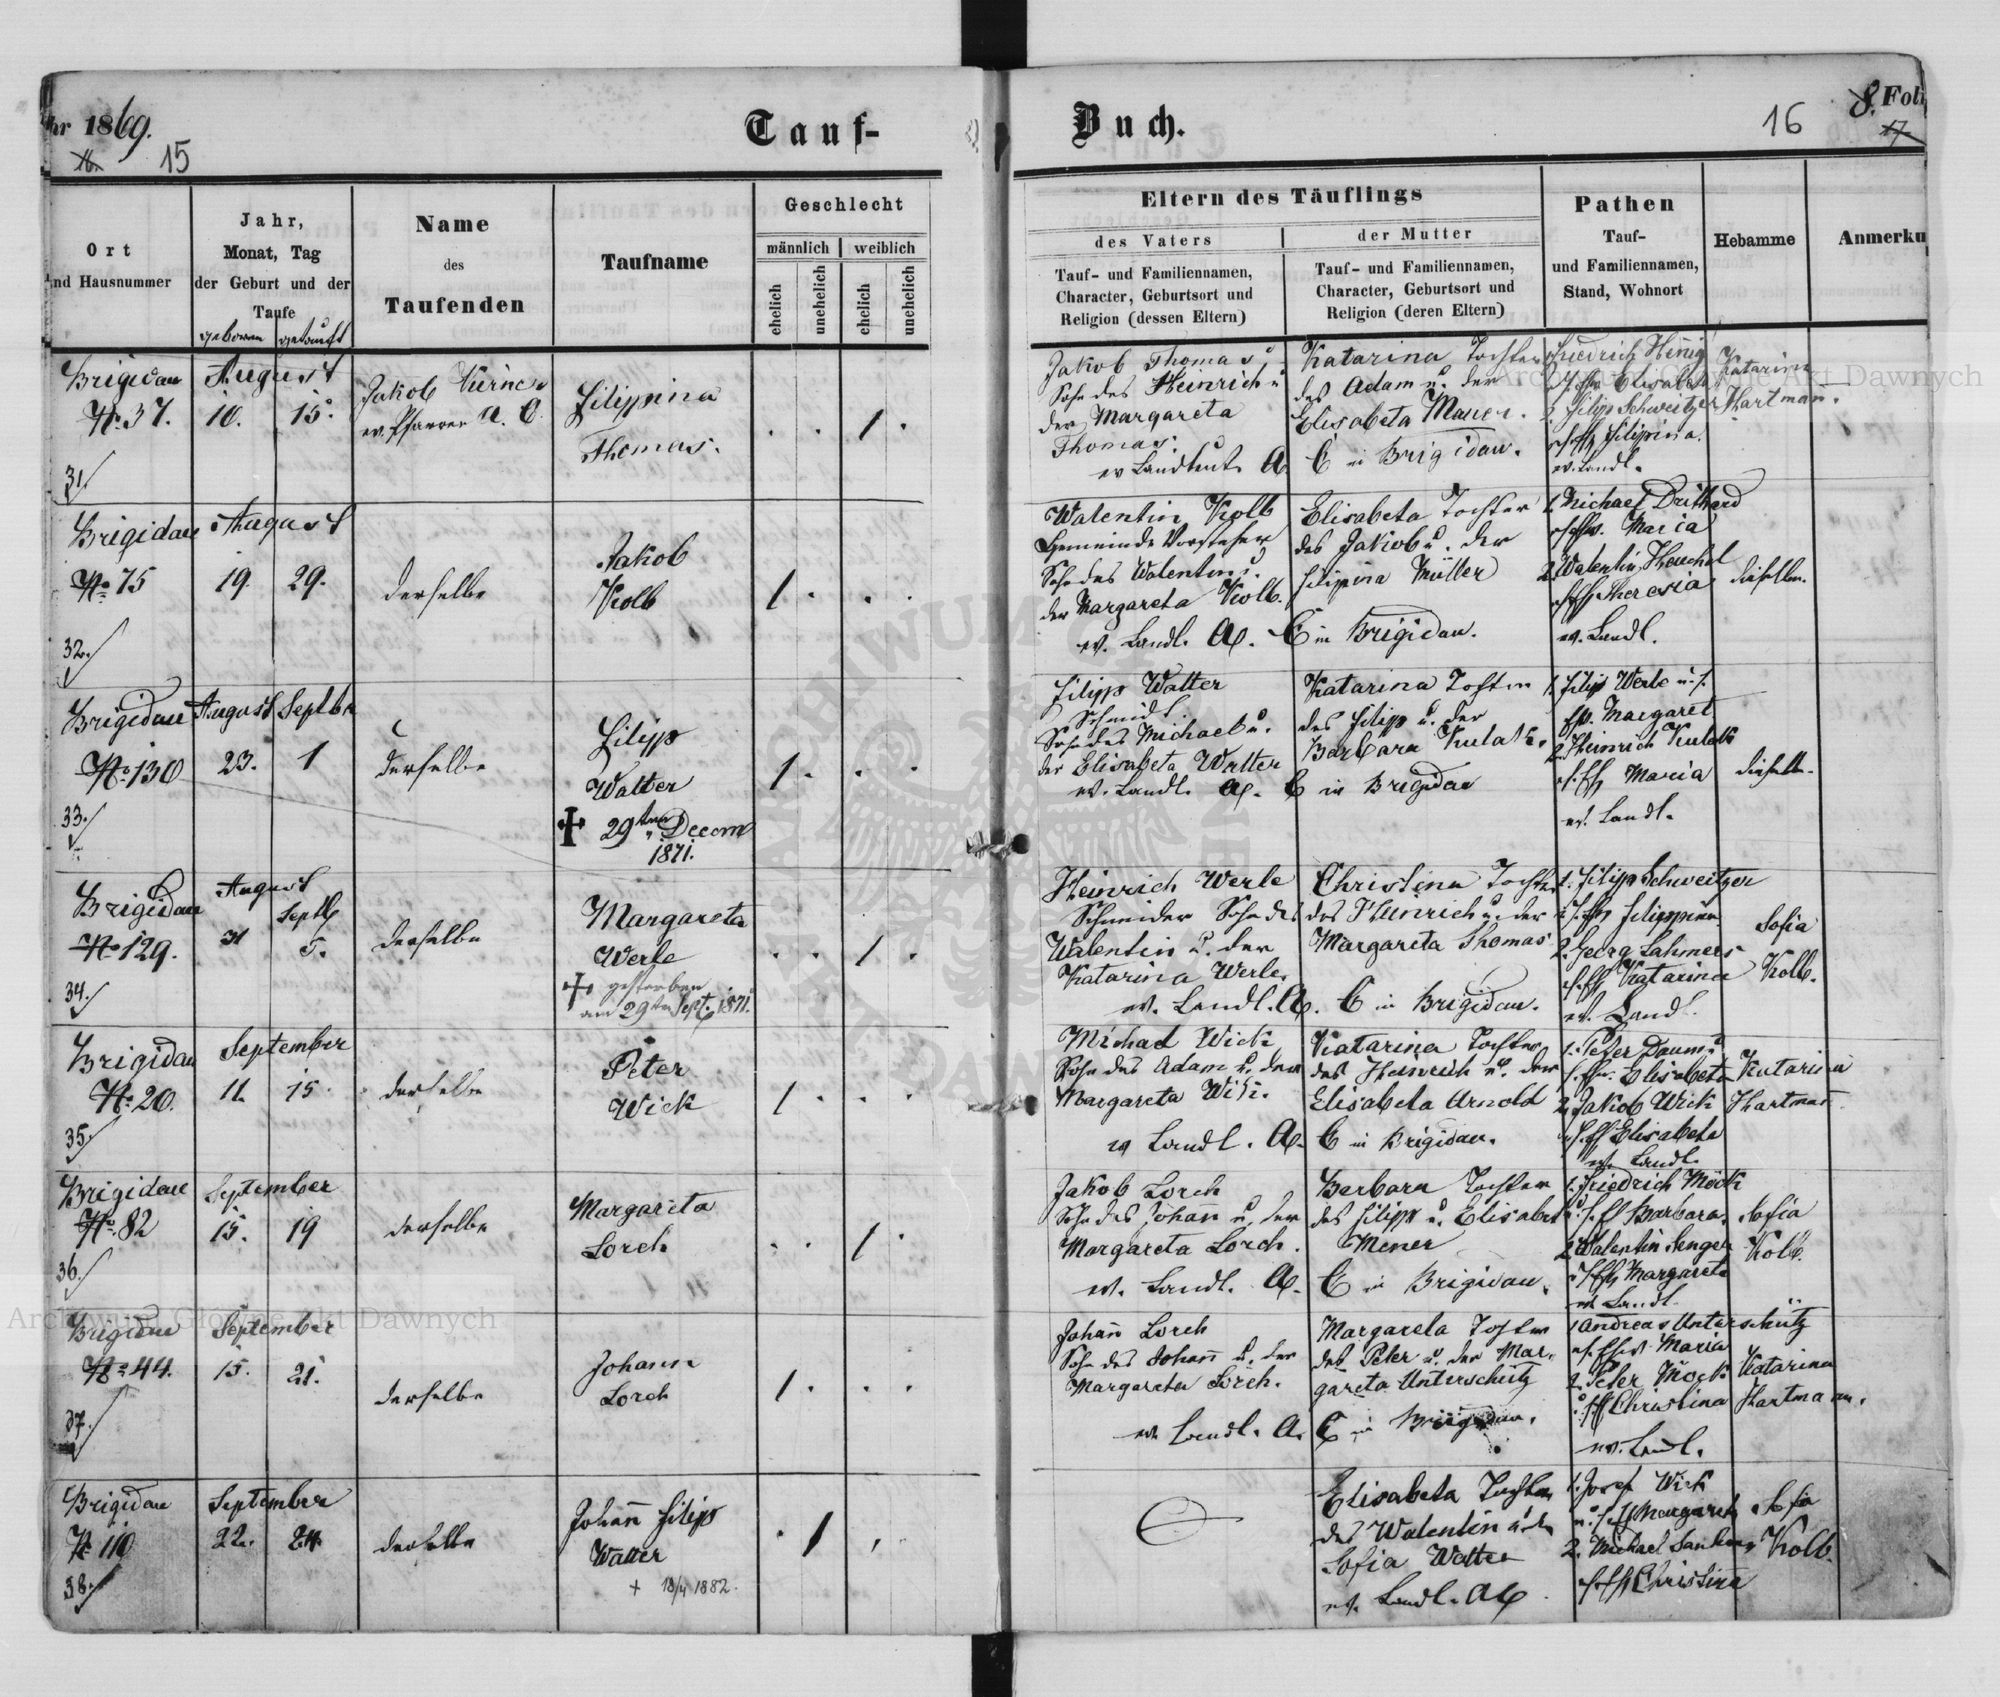 hr 1869.
15
Tauf-
Buch.
16
8. Foli
17
Ort
nd Hausnummer
Jahr,
Monat, Tag
der Geburt und der
Taufe
geboren getauft
Name
des
Taufenden
Taufname
Geschlecht
männlich weiblich
ehelich unehelich ehelich unehelich
Eltern des Täuflings
des Vaters
Tauf- und Familiennamen,
Character, Geburtsort und
Religion (dessen Eltern)
der Mutter
Tauf- und Familiennamen,
Character, Geburtsort und
Religion (deren Eltern)
Pathen
Tauf-
und Familiennamen,
Stand, Wohnort
Hebamme
Anmerku
Brigidau
No. 37.
31/
August
10. 15.
Jakob
ev. Pfarrer A. C.
Filippina
Thomas.
Jakob Thomas
Sohn des Heinrich u
der Margareta
Thomas.
ev Landleute A.
Katarina Tochter
des Adam u. der
Elisabeta Mauer.
C in Brigidau.
Friedrich
Elisabeta
2 Filip Schweitzer
Filipina.
ev. Landl.
Katarina
Hartman.
Brigidau
No 75
32./
August
19. 29.
derselbe
Jakob
Kolb
Walentin Kolb
Gemeinde Vorsteher
Sohn des Walentin u.
der Margareta Kolb.
ev. Landl. A.
Elisabeta Tochter
des Jakob u. der
Filipina Müller
C in Brigidau.
1. Michael
Maria
2. Walentin Heuchel
Theresia
ev. Landl.
dieselbe.
Brigidau
No 130
33./
August Septbr
23. 1
derselbe
Filipp
Walter
29ten Decem
1871.
Filipp Walter
Schmidt
Sohn des Michael u.
der Elisabeta Walter
ev. Landl. A.
Katarina Tochter
des Filipp u. der
Barbara Kulak.
C in Brigidau
1. Filip Werle u. s.
Margaret
2. Heinrich Kulak
Maria
ev. Landl.
dieselbe.
Brigidau
No 129.
34./
August
Septb
31 5.
derselbe
Margareta
Werle
gestorben
am 29ten Sept. 1871.
Heinrich Werle
Schneider Sohn des
Walentin u. der
Katarina Werle.
ev. Landl. A.
Christina Tochter
des Heinrich u. der
Margareta Thomas
C in Brigidau.
1. Filipp Schweitzer
Filippina
2. Georg Lahmers
Katarina
ev. Landl.
Sofia
Kolb.
Brigidau
No. 20.
35./
September
11. 15.
derselbe
Peter
Wick
Michael Wick
Sohn des Adam u. der
Margareta Wik.
ev Landl. A.
Katarina Tochter
des Heinrich u. der
Elisabeta Arnold
C in Brigidau.
1. Peter Daum u
Elisabeta
2. Jakob Wick
Elisabeta
ev. Landl.
Katarina
Hartman
Brigidau
No. 82
36./
September
15. 19
derselbe
Margareta
Lorch
Jakob Lorch
Sohn des Johan u. der
Margareta Lorch.
ev. Landl. A.
Barbara Tochter
des Filipp u. Elisabet
Mener
C in Brigidau.
1. Friedrich Möck
Barbara.
2. Walentin Senger
Margareta
ev. Landl.
Sofia
Kolb.
Brigidau
No 44.
37./
September
15. 21.
derselbe
Johann
Lorch
Johan Lorch
Sohn des Johan u. der
Margareta Lorch.
ev. Landl. A.
Margareta Tochter
des Peter u. der Mar,
gareta Unterschütz
C in Brigidau.
1 Andreas Unterschütz
Maria
2. Peter Möck
Christina
ev. Landl.
Katarina
Hartmann.
Brigidau
No 110
38./
September
22. 24.
derselbe
Johan Filipp
Walter
+ 18/4 1882.
Elisabeta Tochter
des Walentin u. der
Sofia Walter
ev. Landl. AC
1. Josef Wick
Margareta
2. Michael
Christina
Sofia
Kolb.
Archiwum Główne Akt Dawnych
Archiwum Główne Akt Dawnych